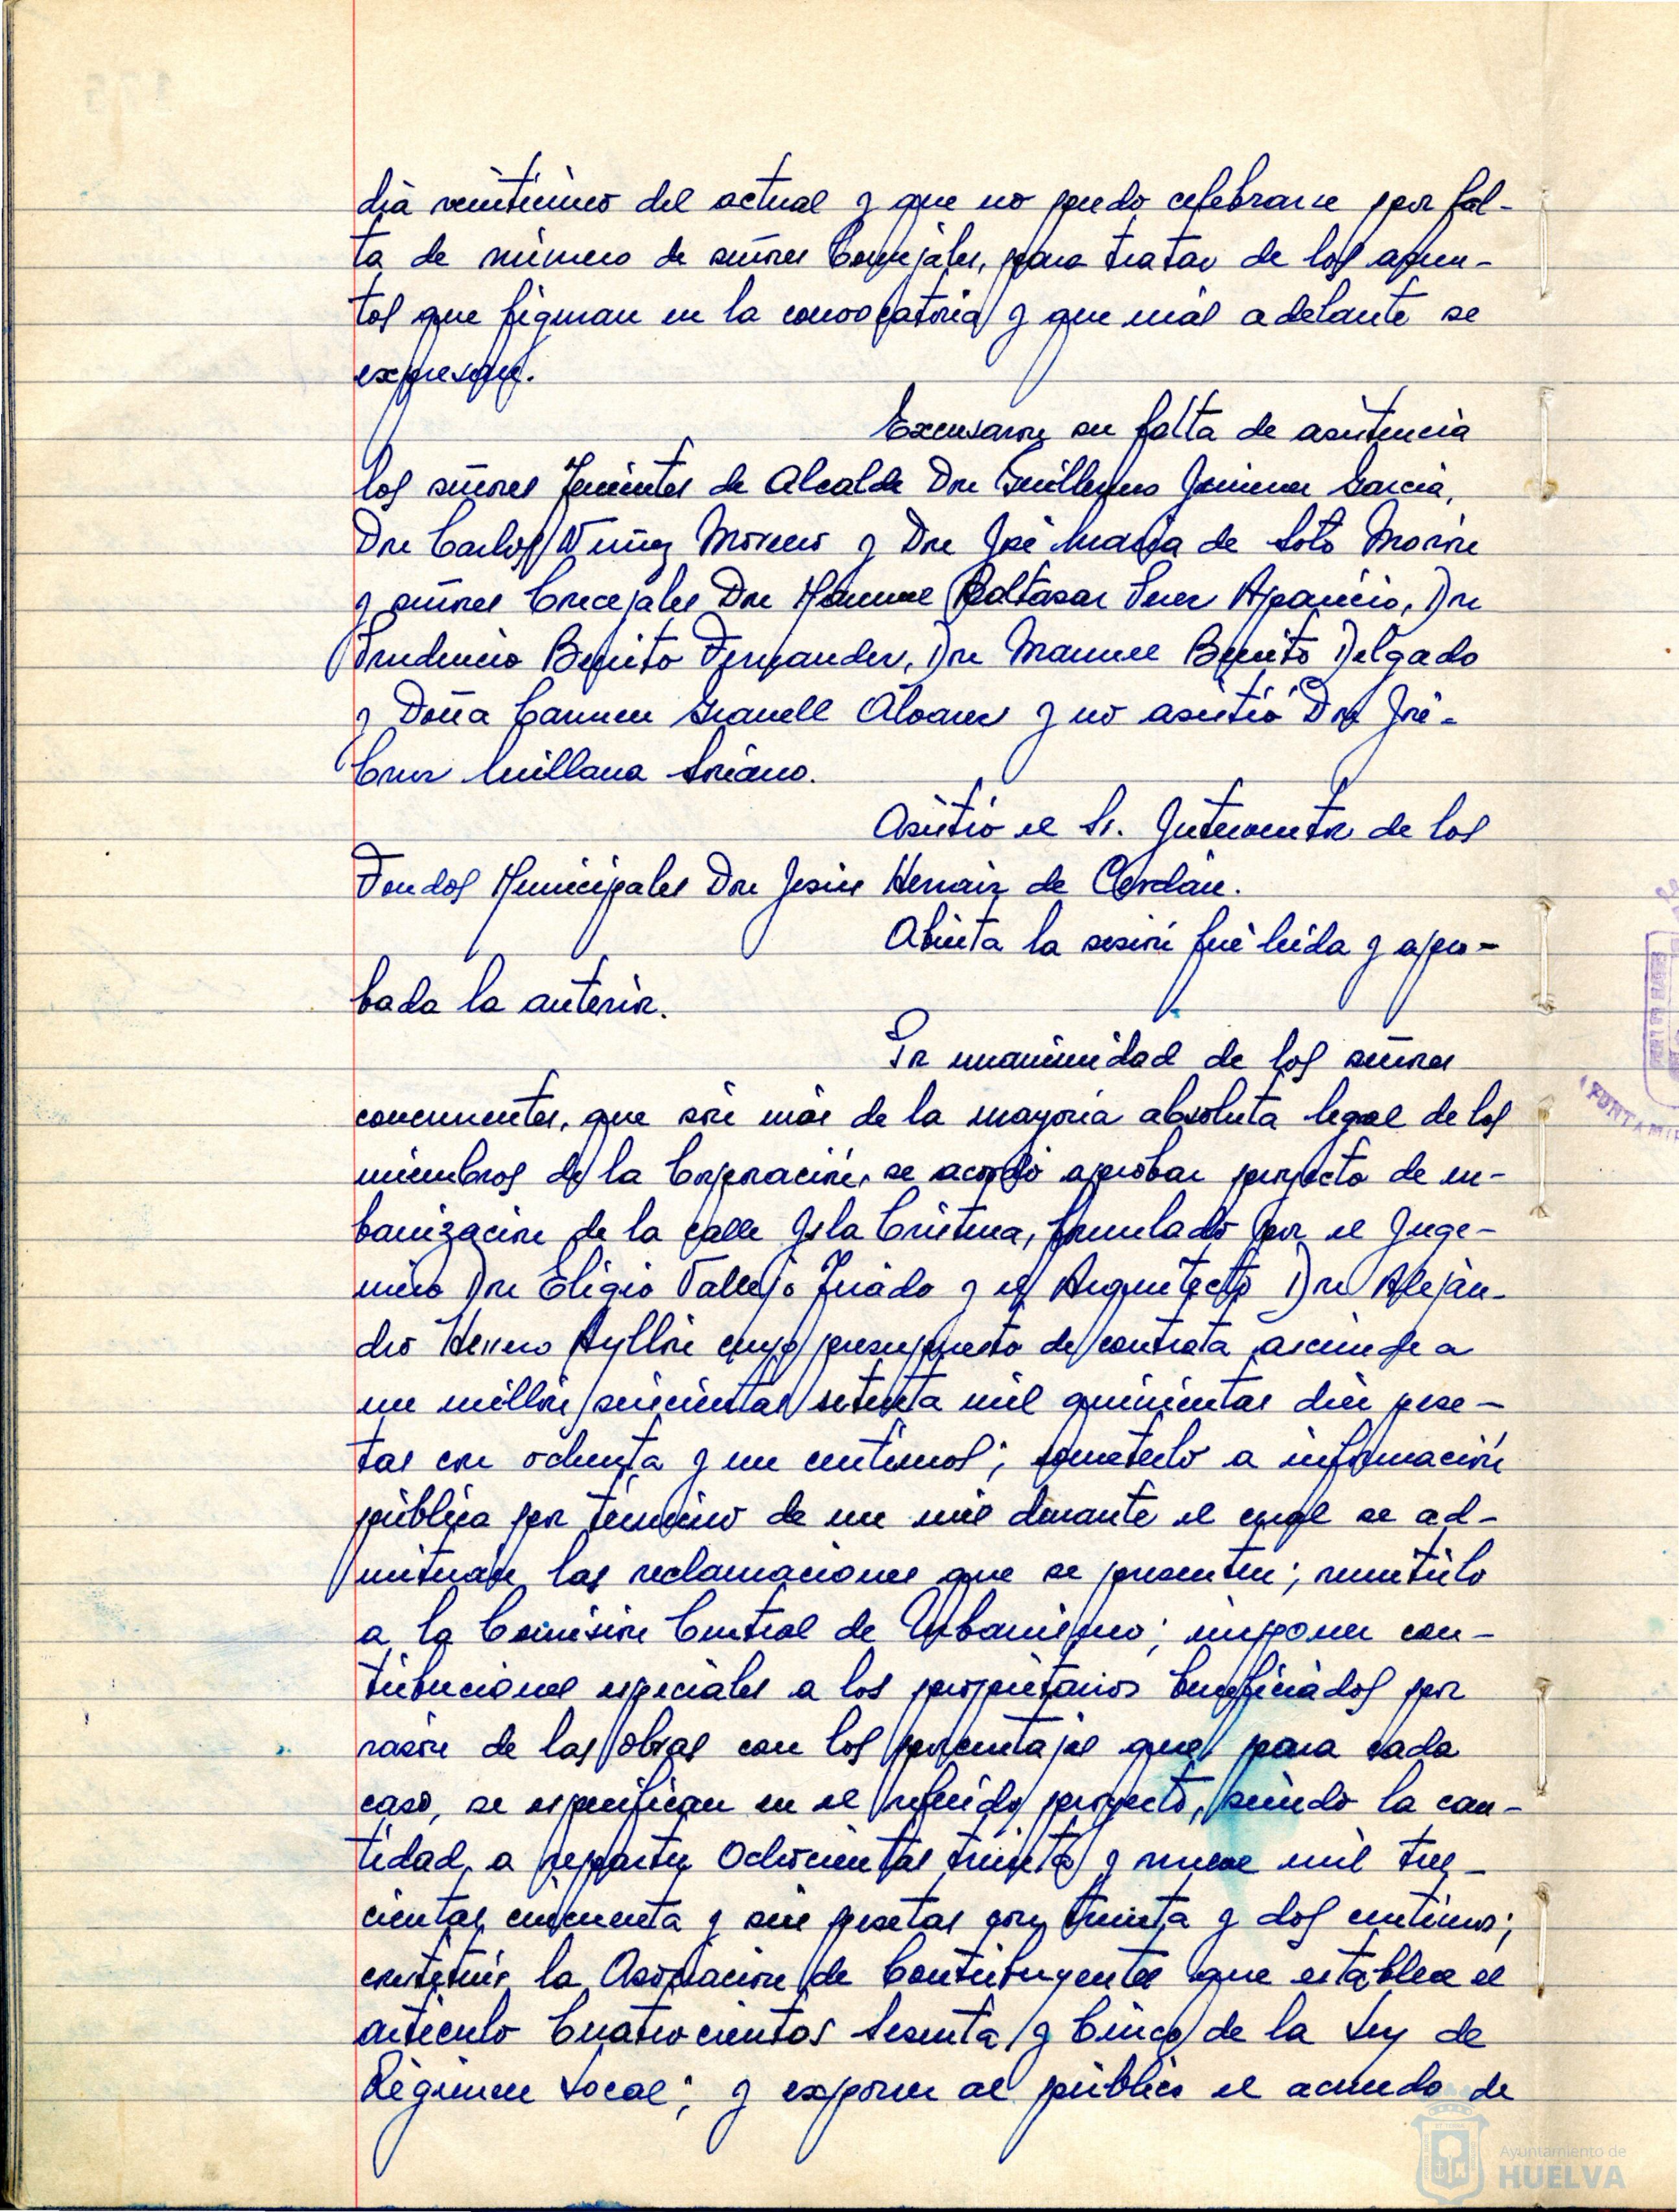 dia veinticinco del actual y que no pudo celebrarse por fal-
ta de número de señores Concejales, para tratar de los asun-
tos que figuran en la convocatoria y que más adelante se
expresan.
Excusaron su falta de asistencia
los señores Tenientes de Alcalde Don Guillermo Jimenez Garcia,
Don Carlos Nuñez Moreno y Don José Maria de Soto Morón
y señores Concejales Don Manuel Baltasar Aparicio, Don
Prudencio Benito Fernandez, Don Manuel Benito Delgado
y Doña Carmen Granell Álvarez y no asistió Don José
Cruz Millana Soriano.
Asistió el Sr. Interventor de los
Fondos Municipales Don Jesús Hernaiz de Cerdán.
Abierta la sesión fué leida y apro-
bada la anterior.
Por unanimidad de los señores
concurrentes, que son más de la mayoria absoluta legal de los
miembros de la Corporación, se acordó aprobar proyecto de ur-
banización de la calle Isla Cristina, formulado por el Inge-
niero Don Eligio Vallejo Triado y el Arquitecto Don Alejan-
dro Herrero Ayllón cuyo presupuesto de contrata asciende a
un millón seiscientas setenta mil quinientas diez pese-
tas con ochenta y un centimos; someterlo a información
pública por término de un mes durante el cual se ad-
mitirán las reclamaciones que se presenten; remitirlo
a la Comisión Central de Urbanismo; imponer con-
tribuciones especiales a los propietarios beneficiados por
razón de las obras con los porcentajes que, para cada
caso, se especifican en el referido proyecto, siendo la can-
tidad a repartir Ochocientas treinta y nueve mil tres-
cientas cincuenta y seis pesetas con treinta y dos centimos;
constituir la Asociación de Contribuyentes que establece el
articulo Cuatrocientos Sesenta y Cinco de la Ley de
Régimen Local; y exponer al público el acuerdo de
Ayuntamiento de
HUELVA